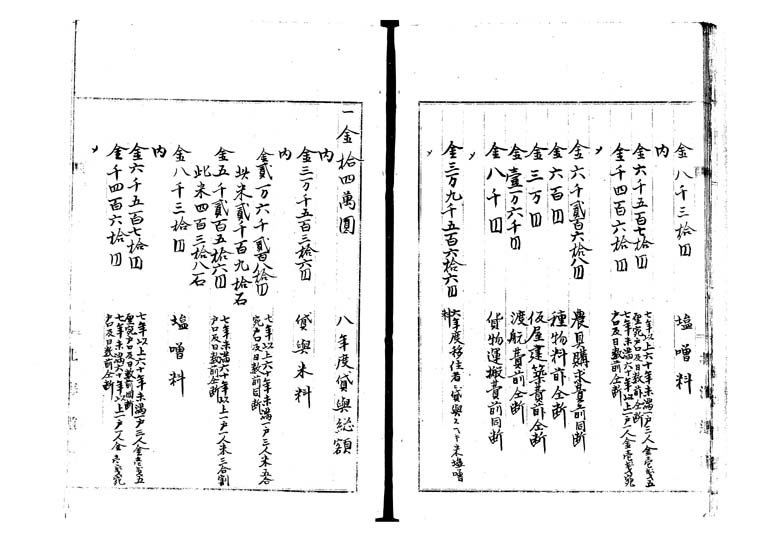 金八千三拾円 塩噌料
内
金六千五百七拾円 七年以上六十年未満一戸三人金壱銭五
厘宛戸口及日数前仝断
金千四百六拾円 七年未満六十年以上一戸二人金壱銭宛
戸口及日数前仝断
〆
金六千貳百六拾八円 農具購求費前同断
金六百円 種物料前仝断
金三万円 仮屋建築費前仝断
金壹万六千円 渡航費前仝断
金八千円 貨物運搬費前同断
〆
金三万九千五百六拾六円 六年度移住者ニ貸與スヘキ米塩噌
料
一金拾四萬圓 八年度貸與総額
内
金三万千五百三拾六円 貸與米料
内
金貳万六千貳百八拾円 七年以上六十年未満一戸三人米五合
宛戸口及日数前同断
此米貳千百九拾石
金五千貳百五拾六円 七年未満六十年以上一戸二人米三合割
戸口及日数前仝断
此米四百三拾八石
金八千三拾円 塩噌料
内
金六千五百七拾円 七年以上六十年未満一戸三人金壱銭五
厘宛戸口及日数前同断
金千四百六拾円 七年未満六十年以上一戸二人金壱銭宛
戸口及日数前仝断
〆